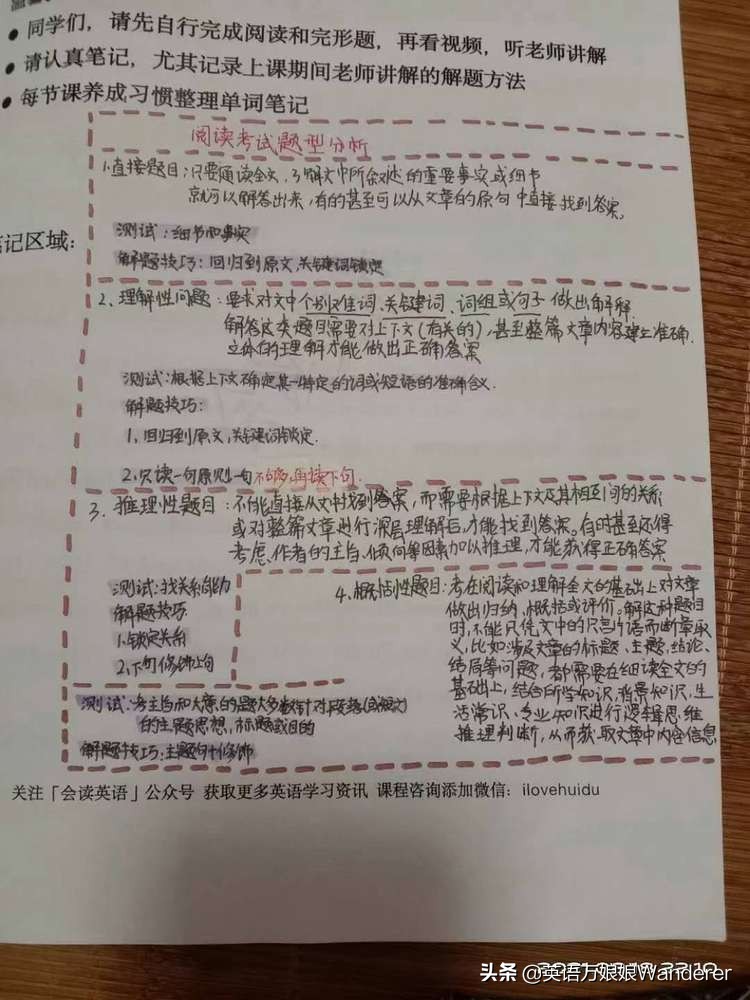 ● 同学们，请先自行完成阅读和完形题，再看视频，听老师讲解
● 请认真笔记，尤其记录上课期间老师讲解的解题方法
● 每节课养成习惯整理单词笔记
阅读考试题型分析
1.直接题目：只要通读全文，了解文中所叙述的重要事实或细节
就可以解答出来，有的甚至可以从文章的原句中直接找到答案。
记区域：
测试：细节和事实
解题技巧：回归到原文，关键词锁定
2、理解性问题：要求对文中个别难词、关键词、词组或句子做出解释
解答这类题目需要对上下文（有关的），甚至整篇文章内容建立准确、
立体的理解才能做出正确答案
测试：根据上下文确定某一特定的词或短语的准确含义.
解题技巧：
1、回归到原文，关键词锁定.
2、只读一句原则一句不够，再读下句.
3、推理性题目：不能直接从文中找到答案，而需要根据上下文及其相互间的关系
或对整篇文章进行深层理解后，才能找到答案。有时甚至还得
考虑作者的主旨、倾向等因素加以推理，才能获得正确答案
测试：找关系能力
解题技巧
1、锁定关系
2、下句修饰上句
4、概括性题目：考在阅读和理解全文的基础上对文章
做出归纳、概括或评价。解这种题目
时，不能只凭文中的只言片语而断章取
义，比如涉及文章的标题、主题、结论、
结局等问题，都需要在细读全文的
基础上，结合所学知识、背景知识、生
活常识、专业知识进行逻辑思维
推理判断，从而获取文章中内容信息
测试：考主旨和大意的题大多数针对段落（或短文）
的主题思想，标题或目的
解题技巧：主题句+修饰
关注「会读英语」公众号 获取更多英语学习资讯 课程咨询添加微信：ilovehuidu
头条 @英语万娘娘Wanderer